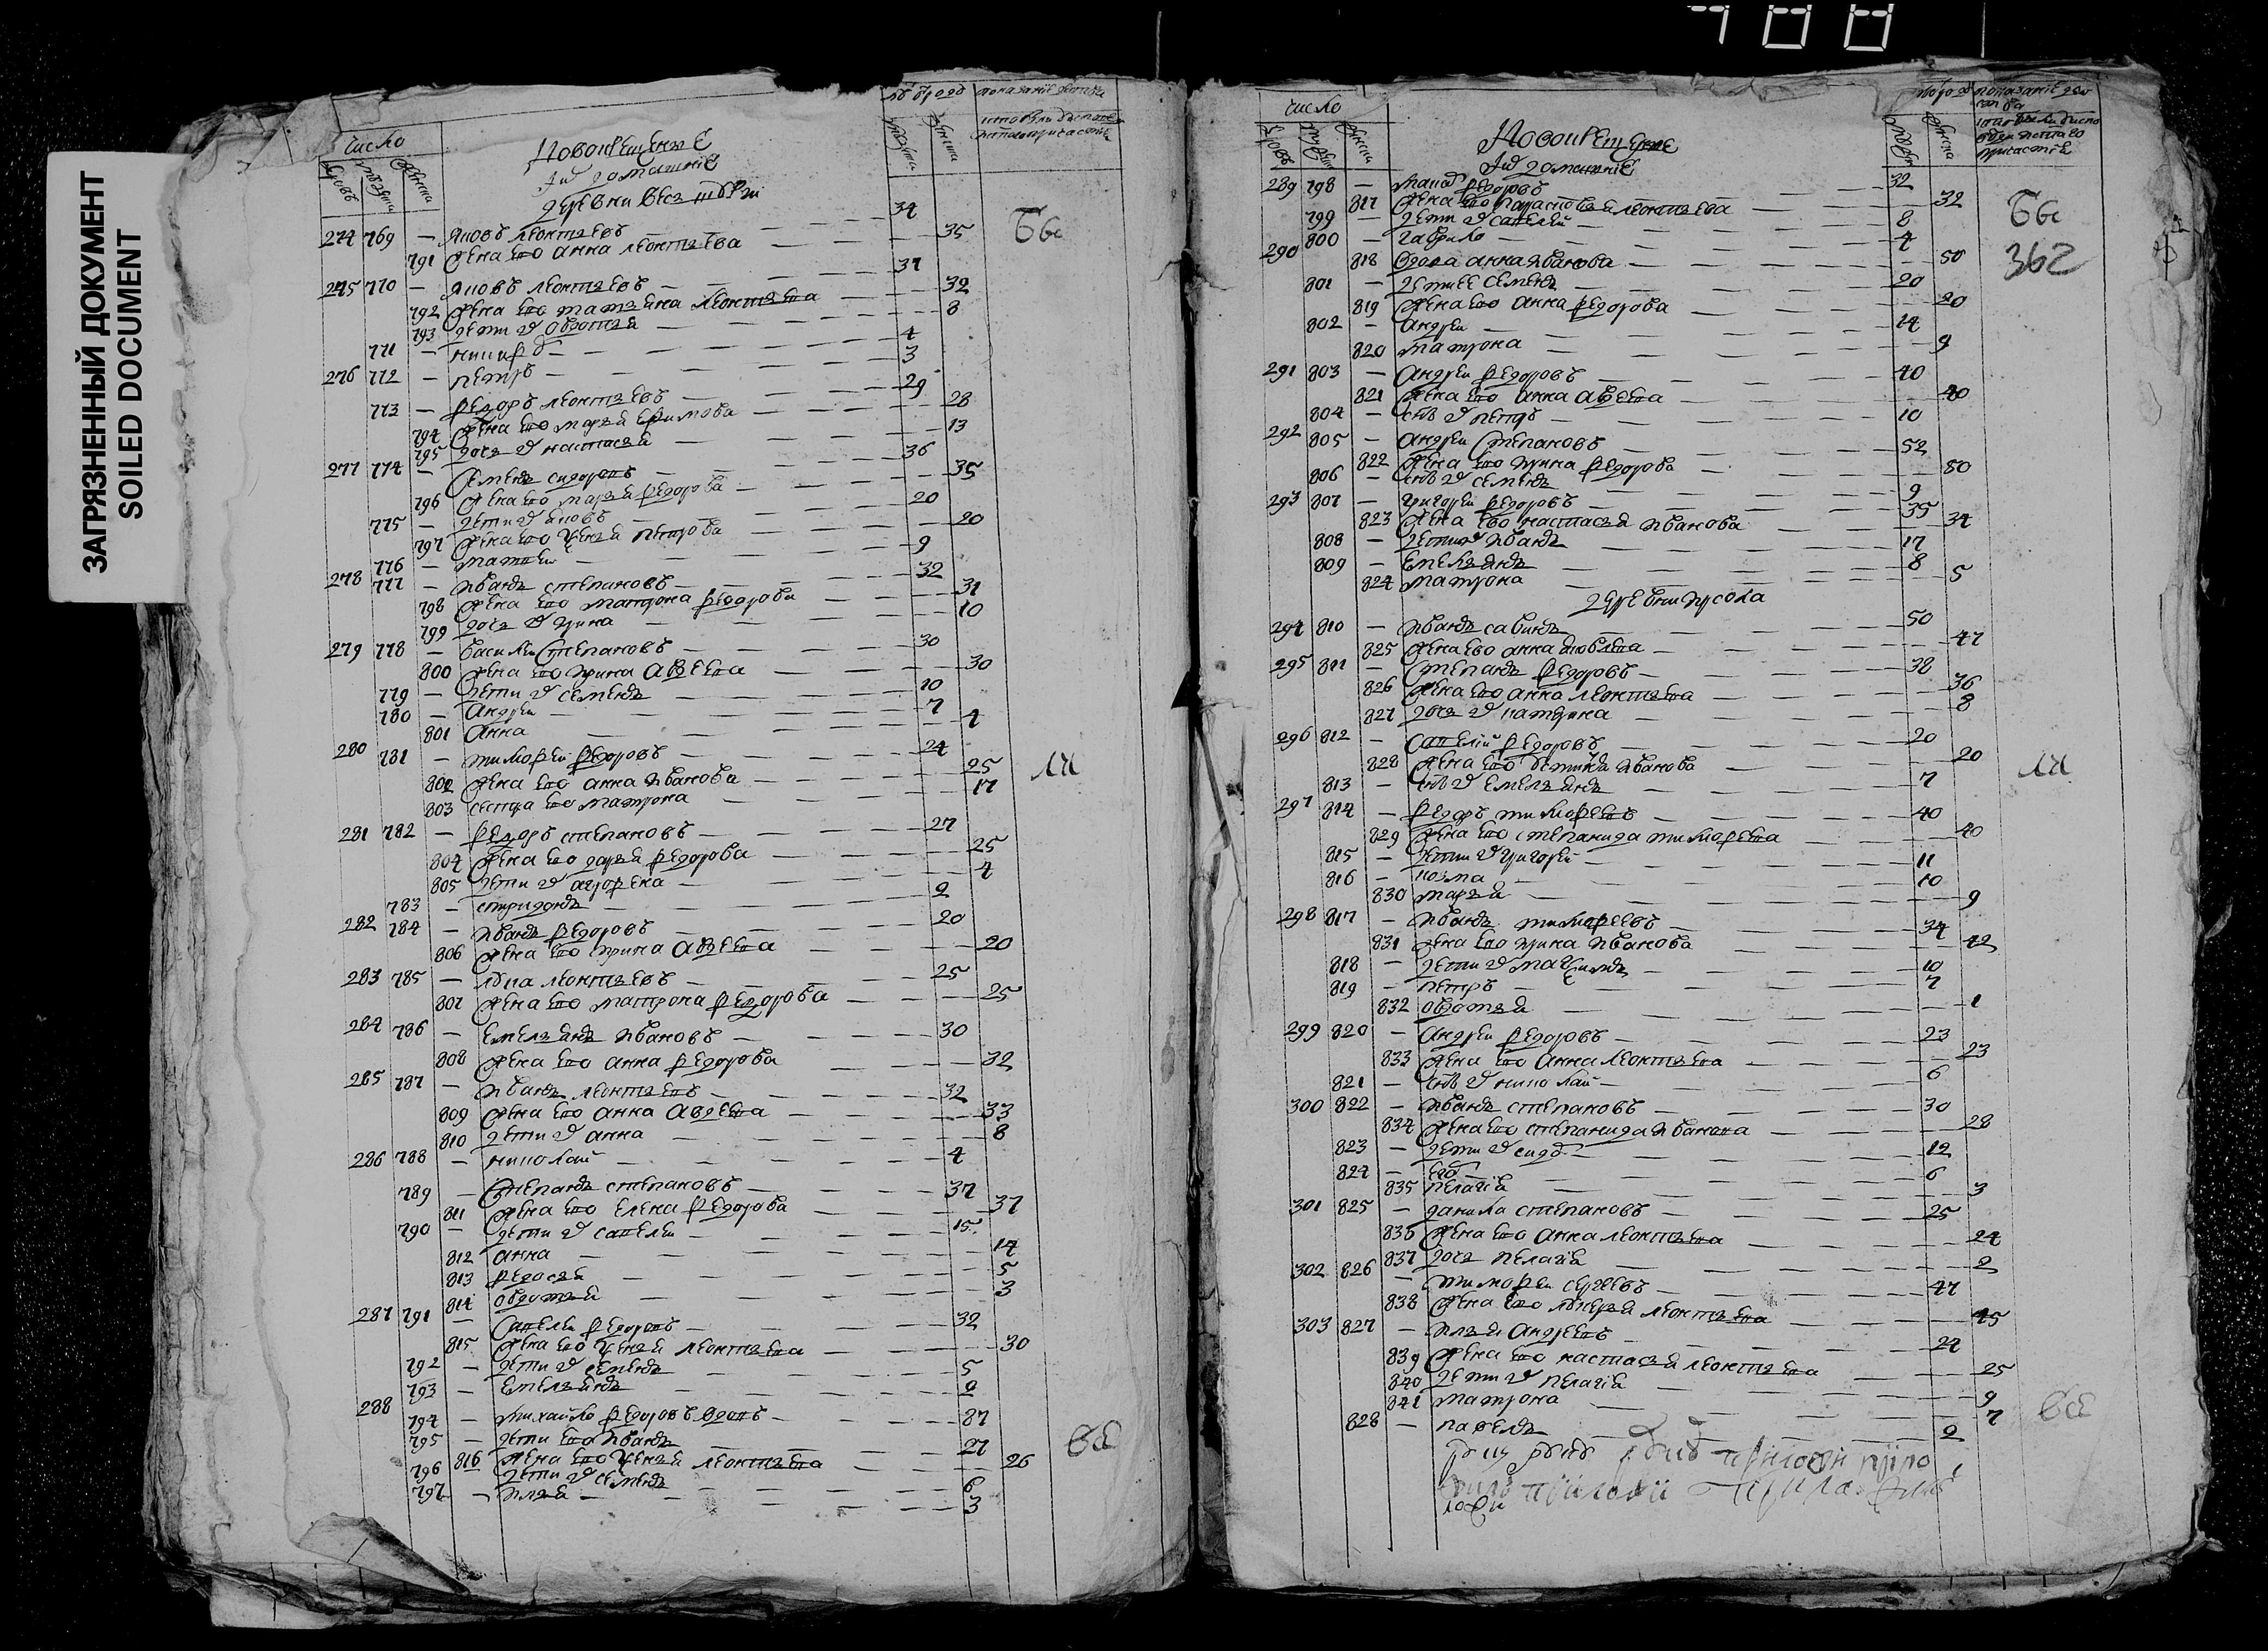 ЗАГРЯЗНЕННЫЙ ДОКУМЕНТ
SOILED DOCUMENT
число
Новокрещение
Их домашние
деревни
274 769 — Яковъ леонтьевъ — 34
791 Жена ево анна леонтьева — 35
275 770 — Яковъ леонтьевъ — 37
792 Жена ево татьяна леонтьева — 32
793 дети их овдотья — 8
771 — — 4
276 772 — петръ — 3
773 — Федоръ леонтьевъ — 29
794 Жена ево марья ефимова — 28
795 дочь их настасья — 13
277 774 — Семенъ сидоровъ — 36
796 Жена ево марья федорова — 35
775 — дети их яковъ — 20
797 Жена ево петрова — 20
776 — матвеи — 9
278 777 — Иванъ степановъ — 32
798 Жена ево матрона федорова — 31
799 дочь их ирина — 10
279 778 — василеи степановъ — 30
800 Жена ево ирина авдеева — 30
779 — дети их семенъ — 10
780 — андреи — 7
801 анна — 4
280 781 — тимофеи федоровъ — 24
802 Жена ево анна иванова — 25
803 сестра ево матрона — 17
281 782 — федоръ степановъ — 27
804 Жена ево дарья федорова — 25
805 дети их агрофена — 4
783 — спиридонъ — 2
282 784 — Иванъ федоровъ — 20
806 Жена ево ирина авдеева — 20
283 785 — лука леонтьевъ — 25
807 Жена ево матрона федорова — 25
284 786 — Емельянъ ивановъ — 30
808 Жена ево анна федорова — 32
285 787 — Иванъ леонтьевъ — 32
809 Жена ево анна авдеева — 33
810 дети их анна — 8
286 788 — николаи — 4
789 — Степанъ степановъ — 37
811 Жена ево елена федорова — 37
790 — дети их савелеи — 15
812 анна — 14
813 федосья — 5
814 овдотья — 3
287 791 — Савелеи федоровъ — 32
815 Жена ево леонтьева — 30
792 — дети их семенъ — 5
793 — Емельянъ — 2
288 794 — михаило федоровъ вдовъ — 87
795 — дети ево иванъ — 27
816 Жена ево леонтьева — 26
796 дети их семенъ — 6
797 — илья — 3
число
Новокрещение
Их домашние
289 798 — федоровъ — 32
817 Жена ево леонтьева — 32
799 — дети их савелеи — 8
800 — гаврило — 4
290 818 вдова анна иванова — 50
801 — дети ее семенъ — 20
819 Жена ево анна федорова — 20
802 — андреи — 14
820 матрона — 9
291 803 — Андреи федоровъ — 40
821 Жена ево анна авдеева — 40
804 — сынъ их петръ — 10
292 805 — Андреи степановъ — 52
822 Жена ево ирина федорова — 50
806 — сынъ их семенъ — 9
293 807 — григореи федоровъ — 35
823 Жена ево настасья иванова — 34
808 — дети их иванъ — 17
809 — Емельянъ — 8
824 матрона — 5
деревни
294 810 — Иванъ савинъ — 50
825 Жена ево анна — 47
295 811 — Степанъ федоровъ — 38
826 Жена ево анна леонтьева — 36
827 дочь их катерина — 8
296 812 — Савелии федоровъ — 20
828 Жена ево устинья иванова — 20
813 — сынъ их емельянъ — 7
297 814 — федоръ тимофеевъ — 40
829 Жена ево степанида тимофеева — 40
815 — дети их григореи — 11
816 — козма — 10
830 марья — 9
298 817 — Иванъ тимофеевъ — 34
831 Жена ево ирина иванова — 42
818 — дети их максимъ — 10
819 — петръ — 7
832 овдотья — 1
299 820 — Андреи федоровъ — 23
833 Жена ево анна леонтьева — 23
821 — сынъ их николаи — 6
300 822 — Иванъ степановъ — 30
834 Жена ево степанида иванова — 28
823 — дети их — 12
824 — — 6
835 пелагия — 3
301 825 — данила степановъ — 25
836 Жена ево анна леонтьева — 24
837 дочь пелагия — 2
302 826 — тимофеи сергеевъ — 47
838 Жена ево леонтьева — 45
303 827 — илья андреевъ — 24
839 Жена ево настасья леонтьева — 25
840 дети их пелагия — 9
841 матрона — 7
828 — павелъ — 2
362